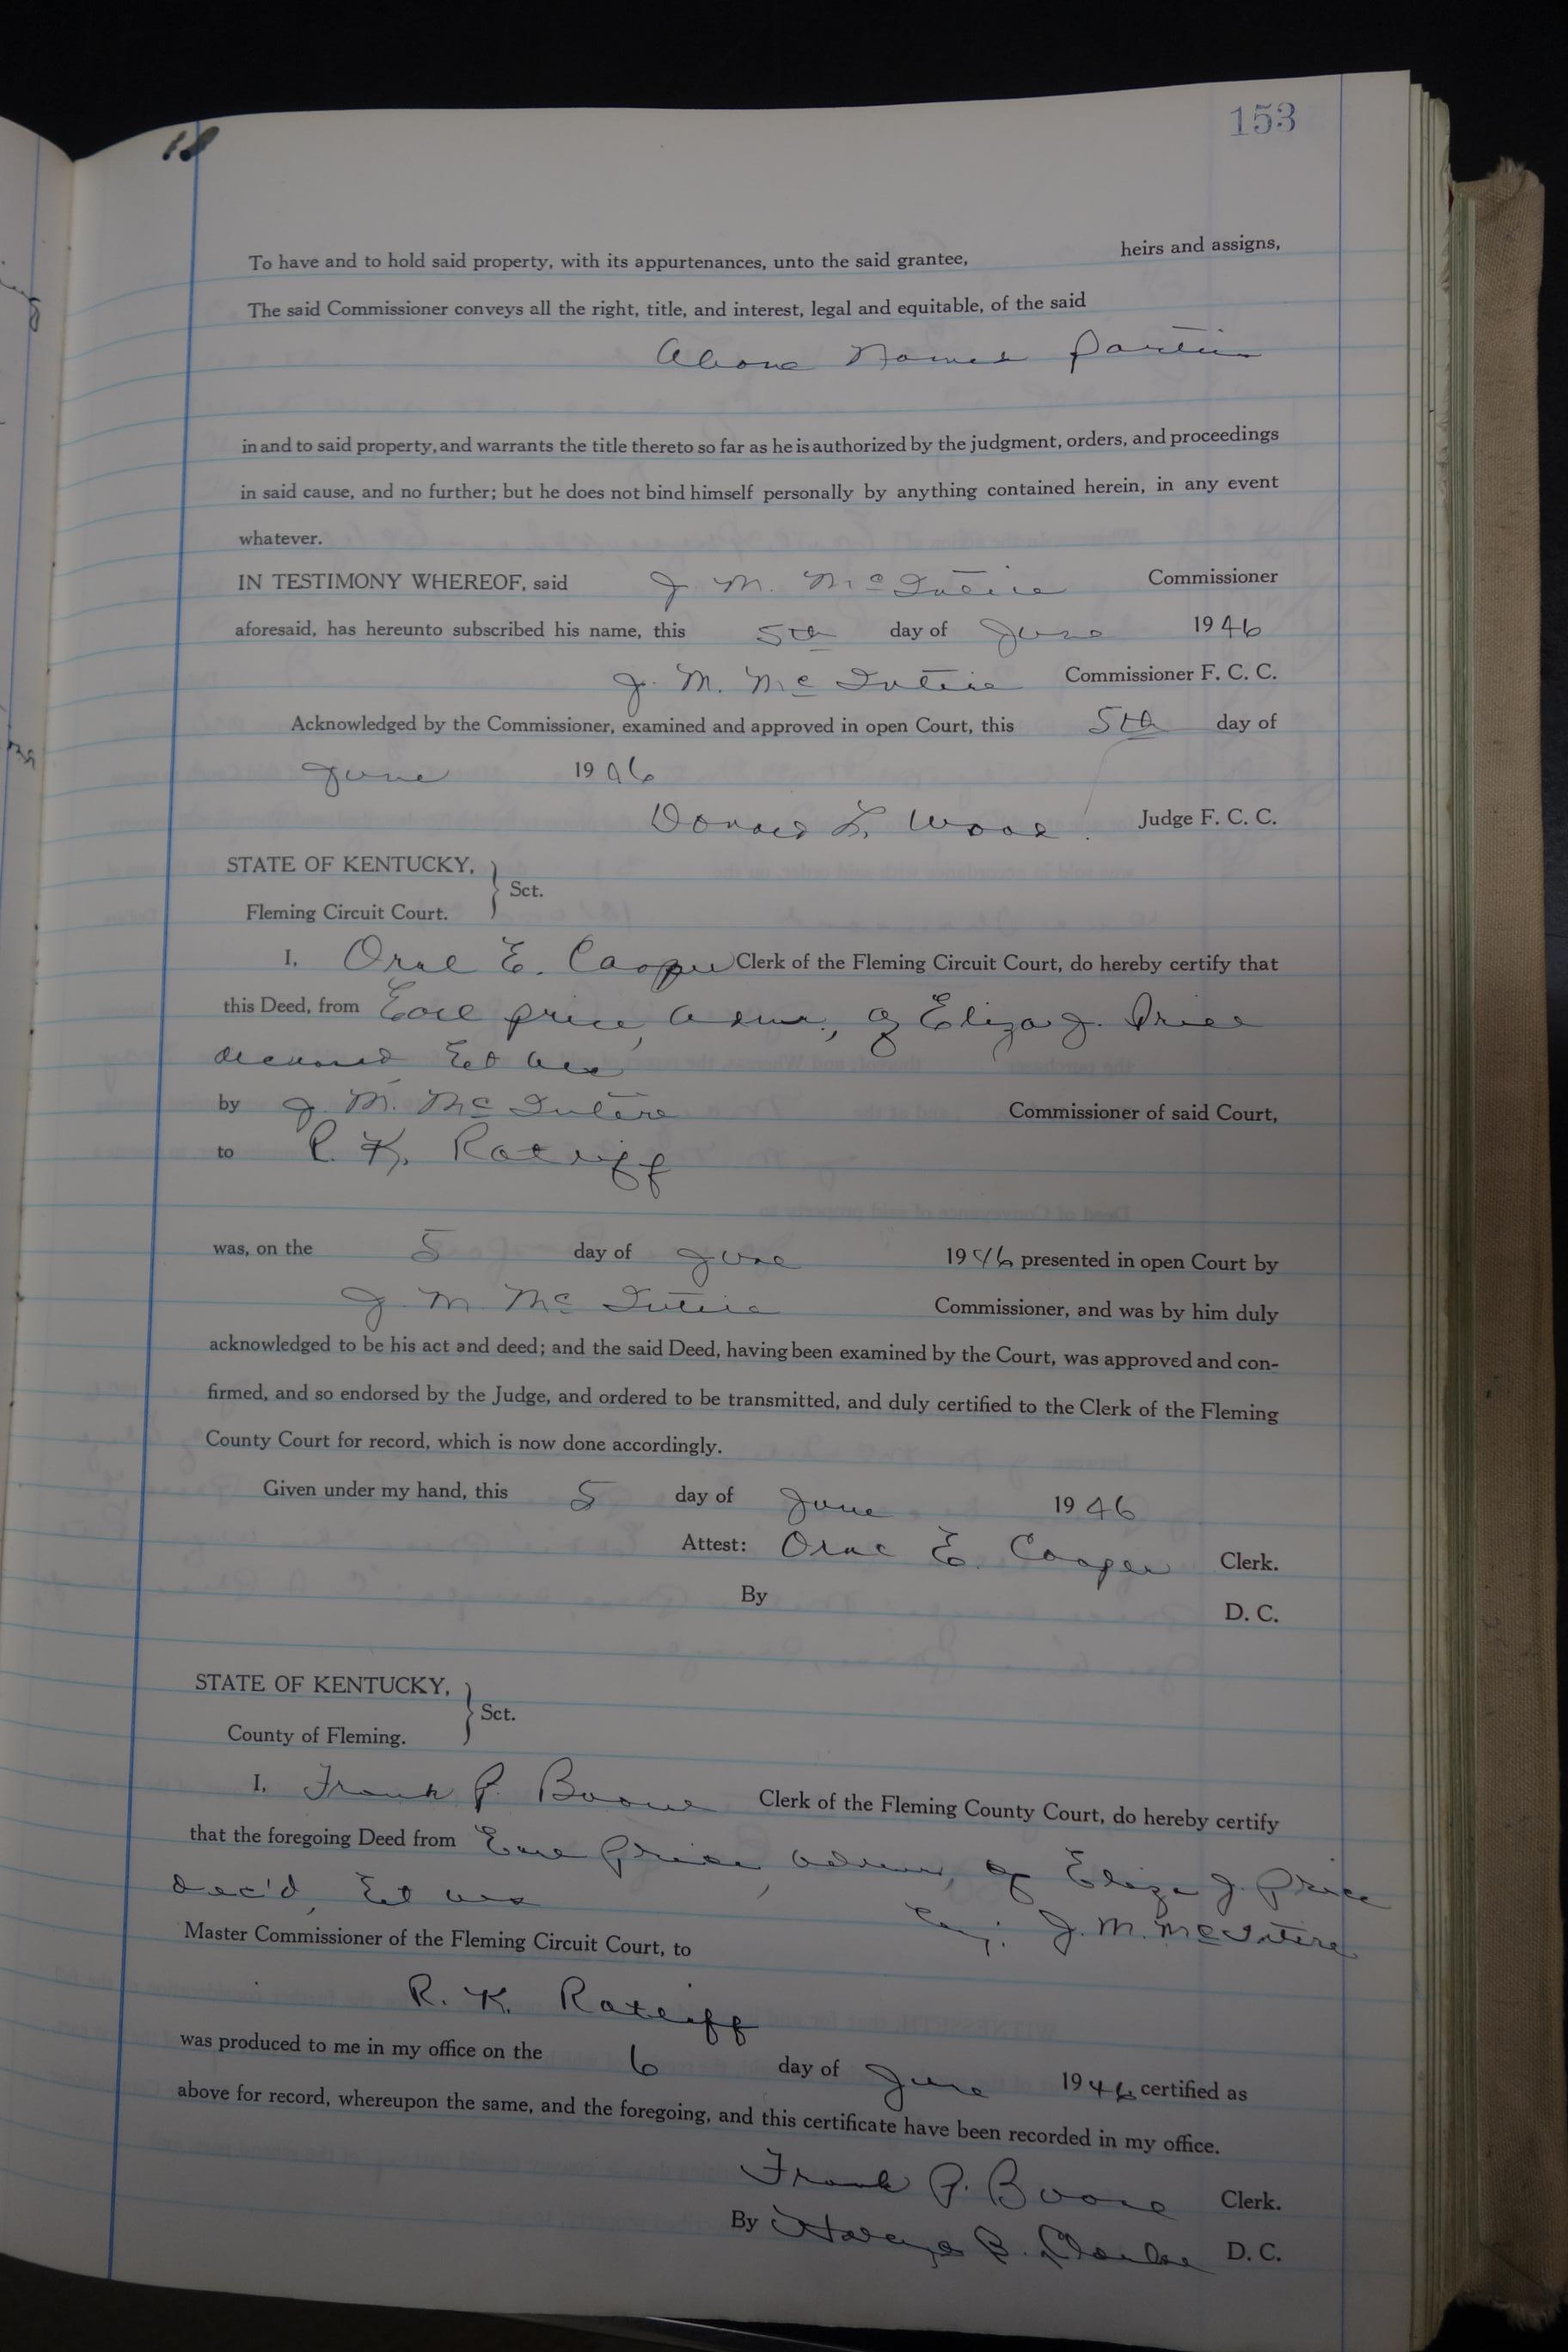 153
To have and to hold said property, with its appurtenances, unto the said grantee, heirs and assigns,
The said Commissioner conveys all the right, title, and interest, legal and equitable, of the said
Above Named parties
in and to said property, and warrants the title thereto so far as he is authorized by the judgment, orders, and proceedings
in said cause, and no further; but he does not bind himself personally by anything contained herein, in any event
whatever.
IN TESTIMONY WHEREOF, said J. M. McIntire Commissioner
aforesaid, has hereunto subscribed his name, this 5th day of June 1946
J. M. McIntire Commissioner F. C. C.
Acknowledged by the Commissioner, examined and approved in open Court, this 5th day of
June 1946
Donald L. Wood Judge F. C. C.
STATE OF KENTUCKY,
Sct.
Fleming Circuit Court.
I, Oral E. Cooper Clerk of the Fleming Circuit Court, do hereby certify that
this Deed, from Earl Price, Admr., of Eliza J. Price
deceased Et als
by J. M. McIntire Commissioner of said Court,
to R. K. Ratliff
was, on the 5 day of June 1946 presented in open Court by
J. M. McIntire Commissioner, and was by him duly
acknowledged to be his act and deed; and the said Deed, having been examined by the Court, was approved and con-
firmed, and so endorsed by the Judge, and ordered to be transmitted, and duly certified to the Clerk of the Fleming
County Court for record, which is now done accordingly.
Given under my hand, this 5 day of June 1946
Attest: Oral E. Cooper Clerk.
By D. C.
STATE OF KENTUCKY,
Sct.
County of Fleming.
I, Frank P. Boone Clerk of the Fleming County Court, do hereby certify
that the foregoing Deed from Earl Price, Admr, of Eliza J. Price
dec'd, Et als By: J. M. McIntire
Master Commissioner of the Fleming Circuit Court, to
R. K. Ratliff
was produced to me in my office on the 6 day of June 1946 certified as
above for record, whereupon the same, and the foregoing, and this certificate have been recorded in my office.
Frank P. Boone Clerk.
By B. D. C.